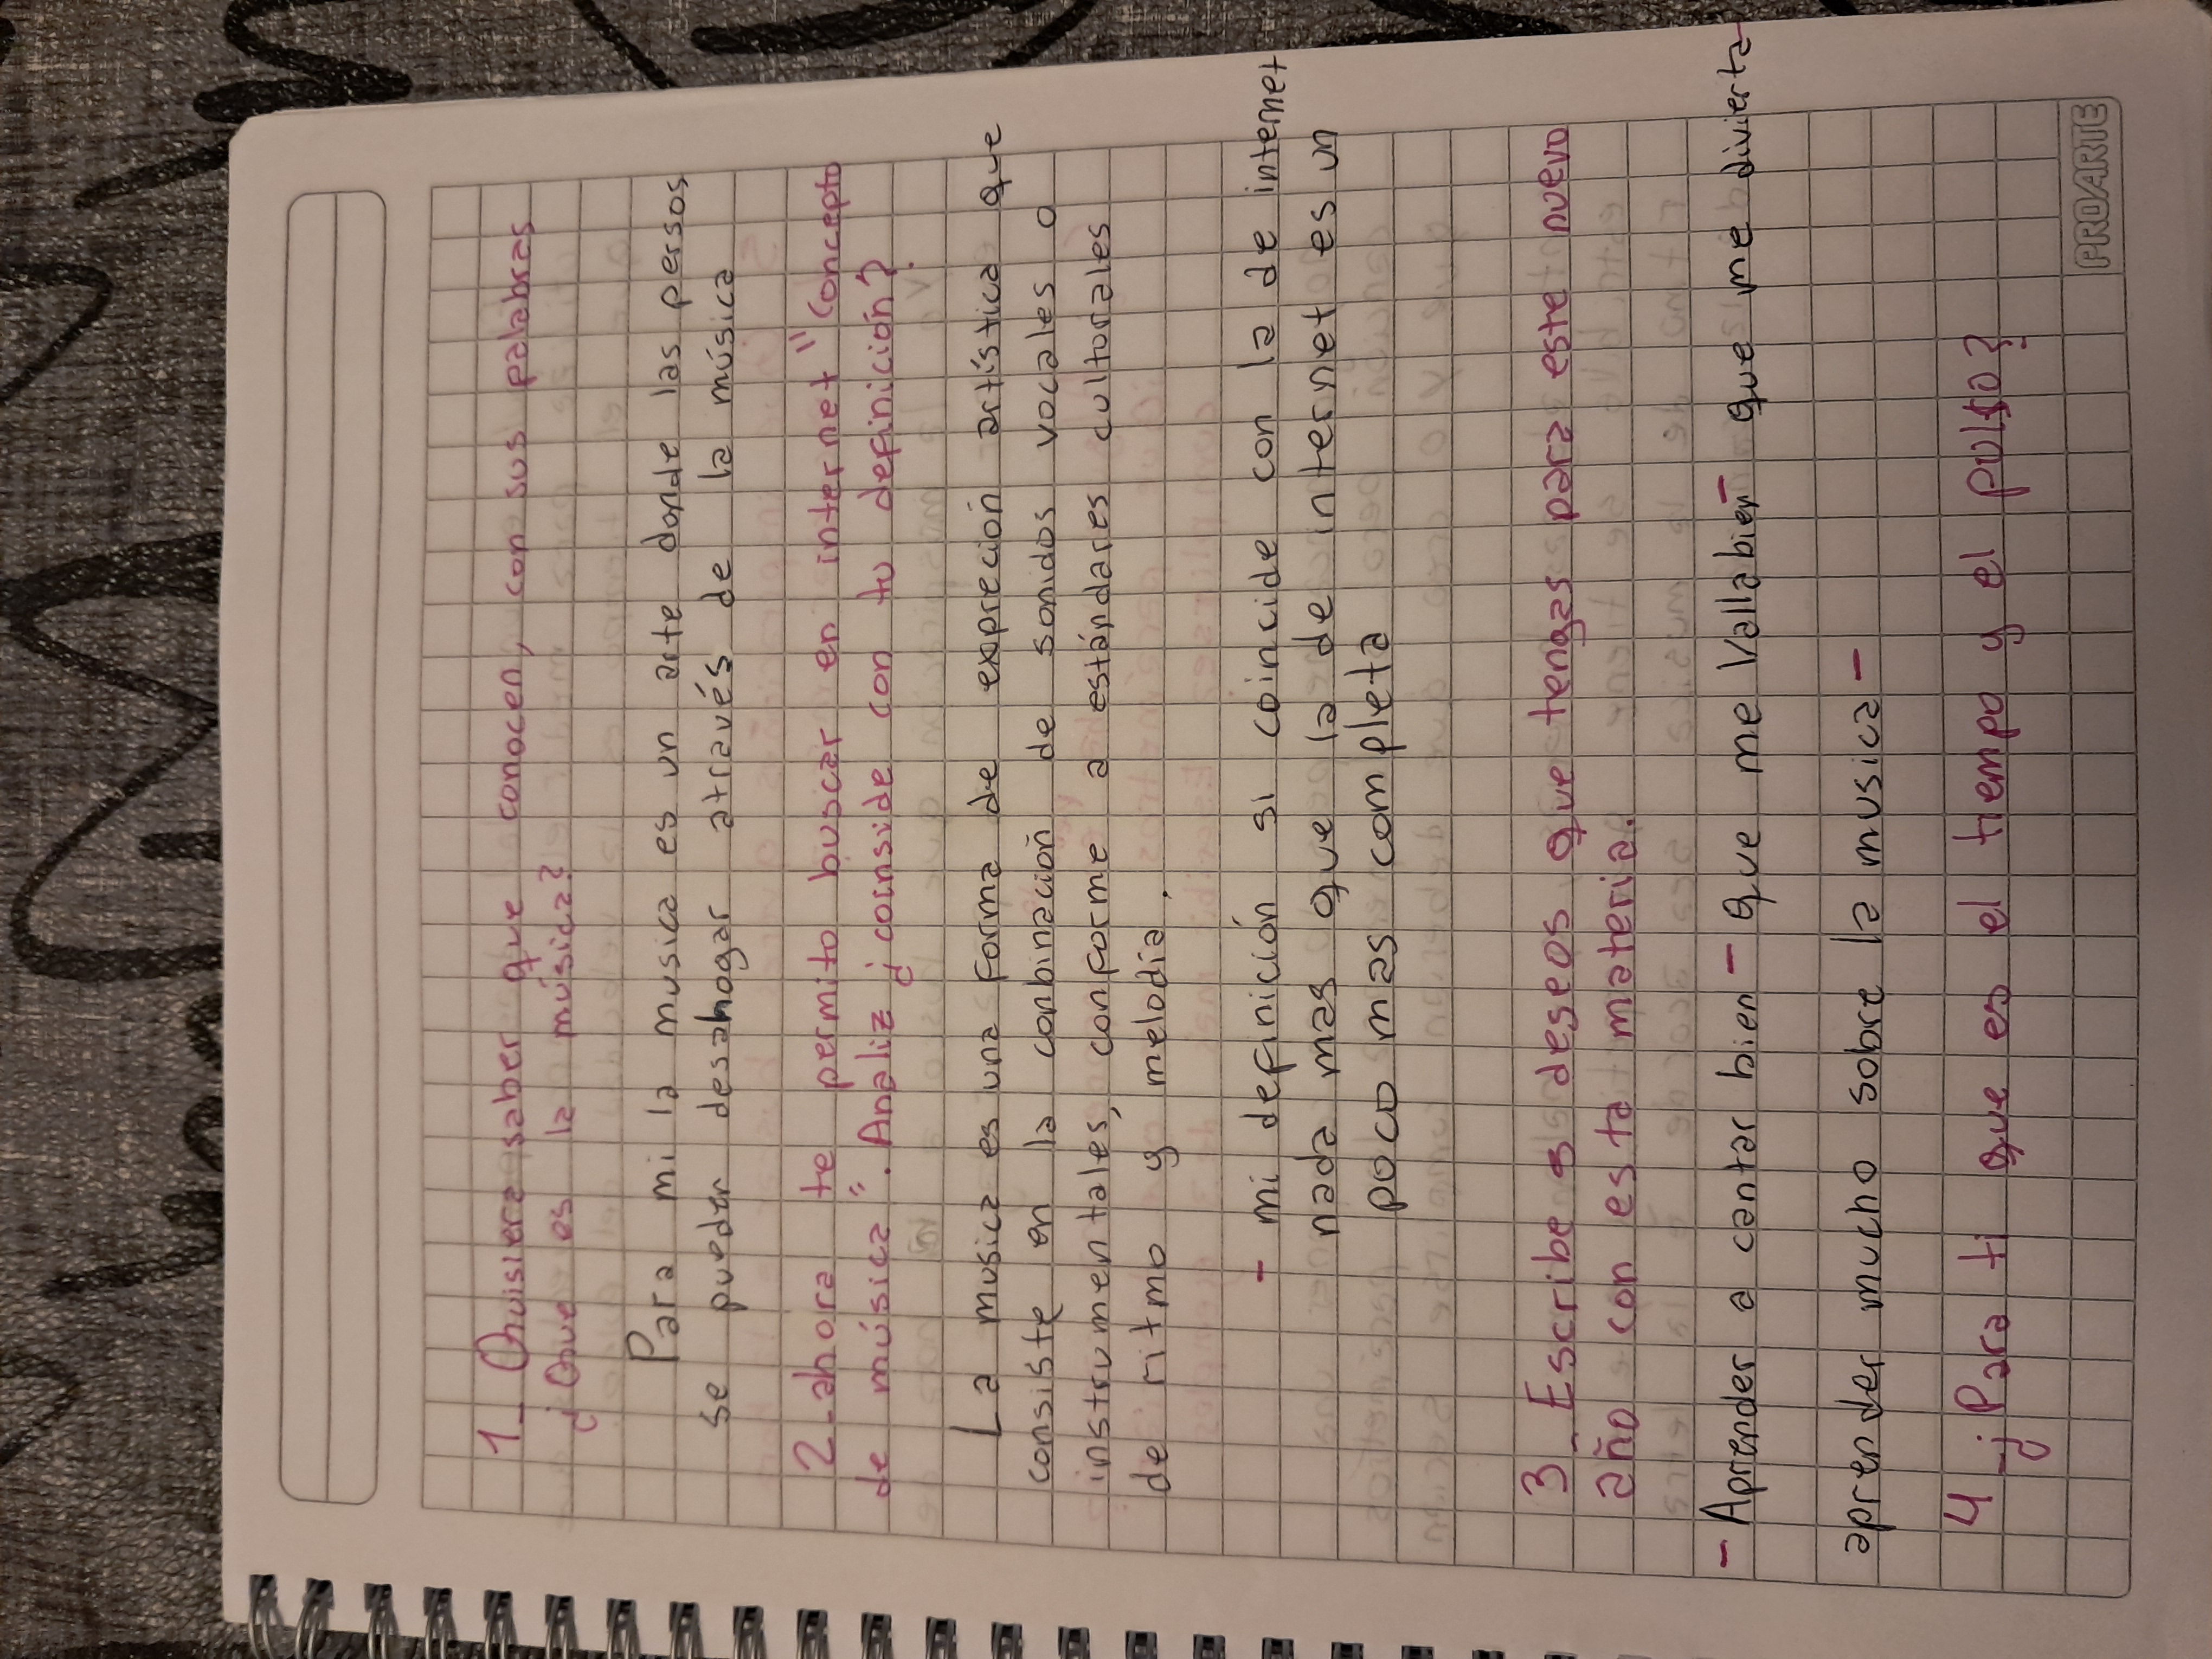 1_ Quisiera saber que conocen, con sus palabras
¿Que es la música?
Para mi la musica es un arte donde las persos
se pueden desahogar através de la música
2-ahora te permito buscar en internet "concepto
de música". Analiz ¿ coinside con tu definición?
La musica es una forma de expreción artística que
consiste en la conbinación de sonidos vocales o
instrumentales, conforme a estándares cultorales
de ritmo y melodia.
- mi definición si coincide con la de internet
nada mas que la de internet es un
poco mas completa
3_ Escribe 3 deseos que tengas para este nuevo
año con esta materia.
- Aprender a cantar bien - que me Vallabien - que me divierta -
aprender mucho sobre la musica -
4_¿ Para ti que es el tiempo y el pulso?
PROARTE